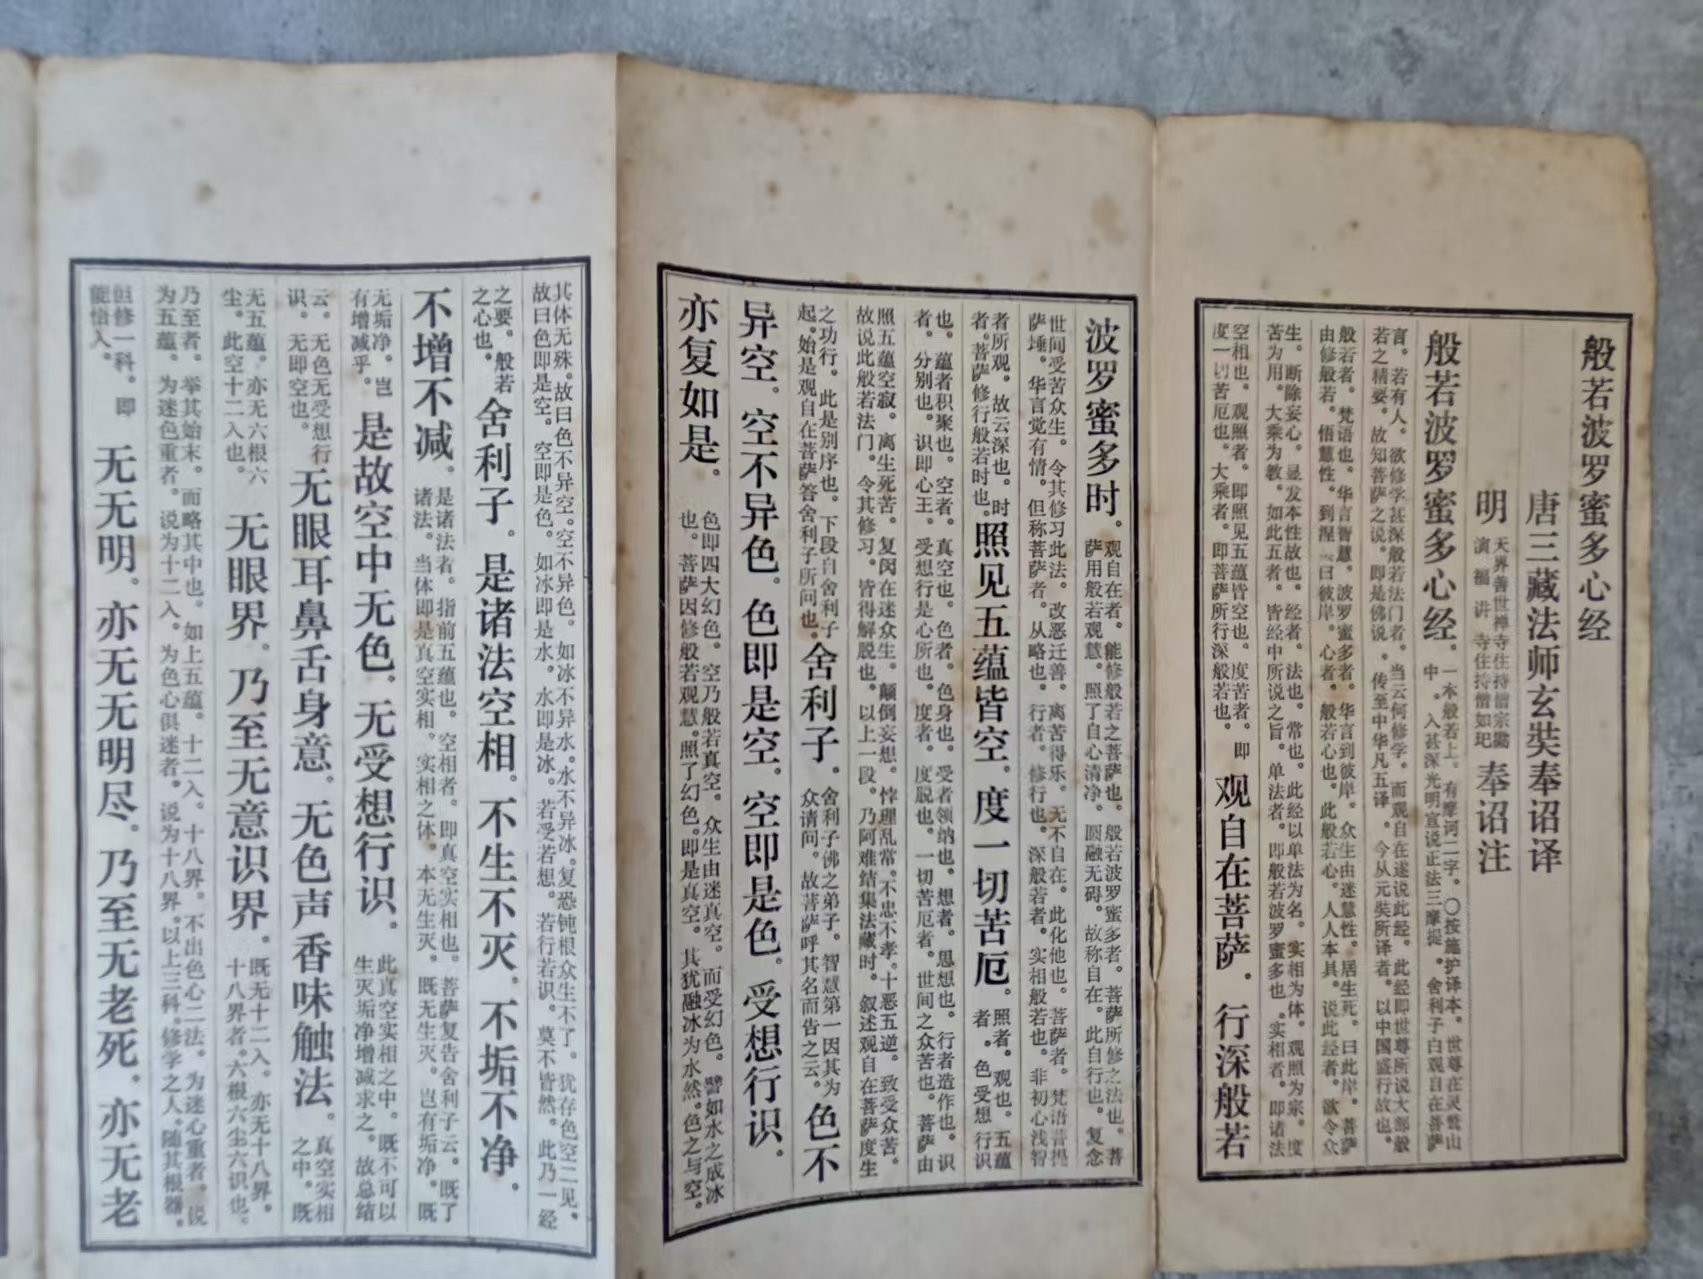 般若波罗蜜多心经
唐三藏法师玄奘奉诏译
明
天界善世禅寺住持僧宗泐
演福讲寺住持僧如玘
奉诏注
般若波罗蜜多心经。
一本般若上。有摩诃二字。〇按施护译本。世尊在灵鹫山
中。入甚深光明宣说正法三摩提。舍利子白观自在菩萨
言。若有人。欲修学甚深般若法门者。当云何修学。而观自在遂说此经。此经即世尊所说大部般
若之精要。故知菩萨之说。即是佛说。传至中华凡五译。今从元奘所译者。以中国盛行故也。
般若者。梵语也。华言智慧。波罗蜜多者。华言到彼岸。众生由迷慧性。居生死。曰此岸。菩萨
由修般若。悟慧性。到涅 曰彼岸。心者。般若心也。此般若心。人人本具。说此经者。欲令众
生。断除妄心。显发本性故也。经者。法也。常也。此经以单法为名。实相为体。观照为宗。度
苦为用。大乘为教。如此五者。皆经中所说之旨。单法者。即般若波罗蜜多也。实相者。即诸法
空相也。观照者。即照见五蕴皆空也。度苦者。即
度一切苦厄也。大乘者。即菩萨所行深般若也。
观自在菩萨。行深般若
波罗蜜多时。
观自在者。能修般若之菩萨也。般若波罗蜜多者。菩萨所修之法也。菩
萨用般若观慧。照了自心清净。圆融无碍。故称自在。此自行也。复念
世间受苦众生。令其修习此法。改恶迁善。离苦得乐。无不自在。此化他也。菩萨者。梵语菩提
萨埵。华言觉有情。但称菩萨者。从略也。行者。修行也。深般若者。实相般若也。非初心浅智
者所观。故云深也。时
者。菩萨修行般若时也。
照见五蕴皆空。度一切苦厄。
照者。观也。五蕴
者。色受想行识
也。蕴者积聚也。空者。真空也。色者。色身也。受者领纳也。想者。思想也。行者造作也。识
者。分别也。识即心王。受想行是心所也。度者。度脱也。一切苦厄者。世间之众苦也。菩萨由
照五蕴空寂。离生死苦。复闵在迷众生。颠倒妄想。悖理乱常。不忠不孝。十恶五逆。致受众苦。
故说此般若法门。令其修习。皆得解脱也。以上一段。乃阿难结集法藏时。叙述观自在菩萨度生
之功行。此是别序也。下段自舍利子
起。始是观自在菩萨答舍利子所问也。
舍利子。
舍利子佛之弟子。智慧第一因其为
众请问。故菩萨呼其名而告之云。
色不
异空。空不异色。色即是空。空即是色。受想行识。
亦复如是。
色即四大幻色。空乃般若真空。众生由迷真空。而受幻色。譬如水之成冰
也。菩萨因修般若观慧。照了幻色。即是真空。其犹融冰为水然。色之与空。
其体无殊。故曰色不异空。空不异色。如冰不异水。水不异冰。复恐钝根众生不了。犹存色空二见。
故曰色即是空。空即是色。如冰即是水。水即是冰。若受若想。若行若识。莫不皆然。此乃一经
之要。般若
之心也。
舍利子。是诸法空相。不生不灭。不垢不净。
不增不减。
是诸法者。指前五蕴也。空相者。即真空实相也。菩萨复告舍利子云。既了
诸法。当体即是真空实相。实相之体。本无生灭。既无生灭。岂有垢净。既
无垢净。岂
有增减乎。
是故空中无色。无受想行识。
此真空实相之中。既不可以
生灭垢净增减求之。故总结
云。无色无受想行
识。无即空也。
无眼耳鼻舌身意。无色声香味触法。
真空实相
之中。既
无五蕴。亦无六根六
尘。此空十二入也。
无眼界。乃至无意识界。
既无十二入。亦无十八界。
十八界者。六根六尘六识也。
乃至者。举其始末。而略其中也。如上五蕴。十二入。十八界。不出色心二法。为迷心重者。说
为五蕴。为迷色重者。说为十二入。为色心俱迷者。说为十八界。以上三科。修学之人。随其根器。
但修一科。即
能悟入。
无无明。亦无无明尽。乃至无老死。亦无老